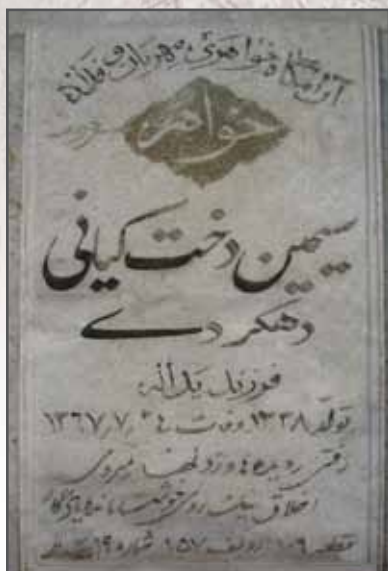 آرامگاه خواهری مهربان و
خواهر
سیمین دخت کیانی
دهکردی
فرزند یداله
تولد ۱۳۳۸ وفات ۱۳۶۷٫۷٫
رفتی ز دیده ها و ز دلها نمیروی
اخلاق نیک روی خوشت
قطعه ۱۰۹ ردیف ۱۵۷ شماره ۱۹